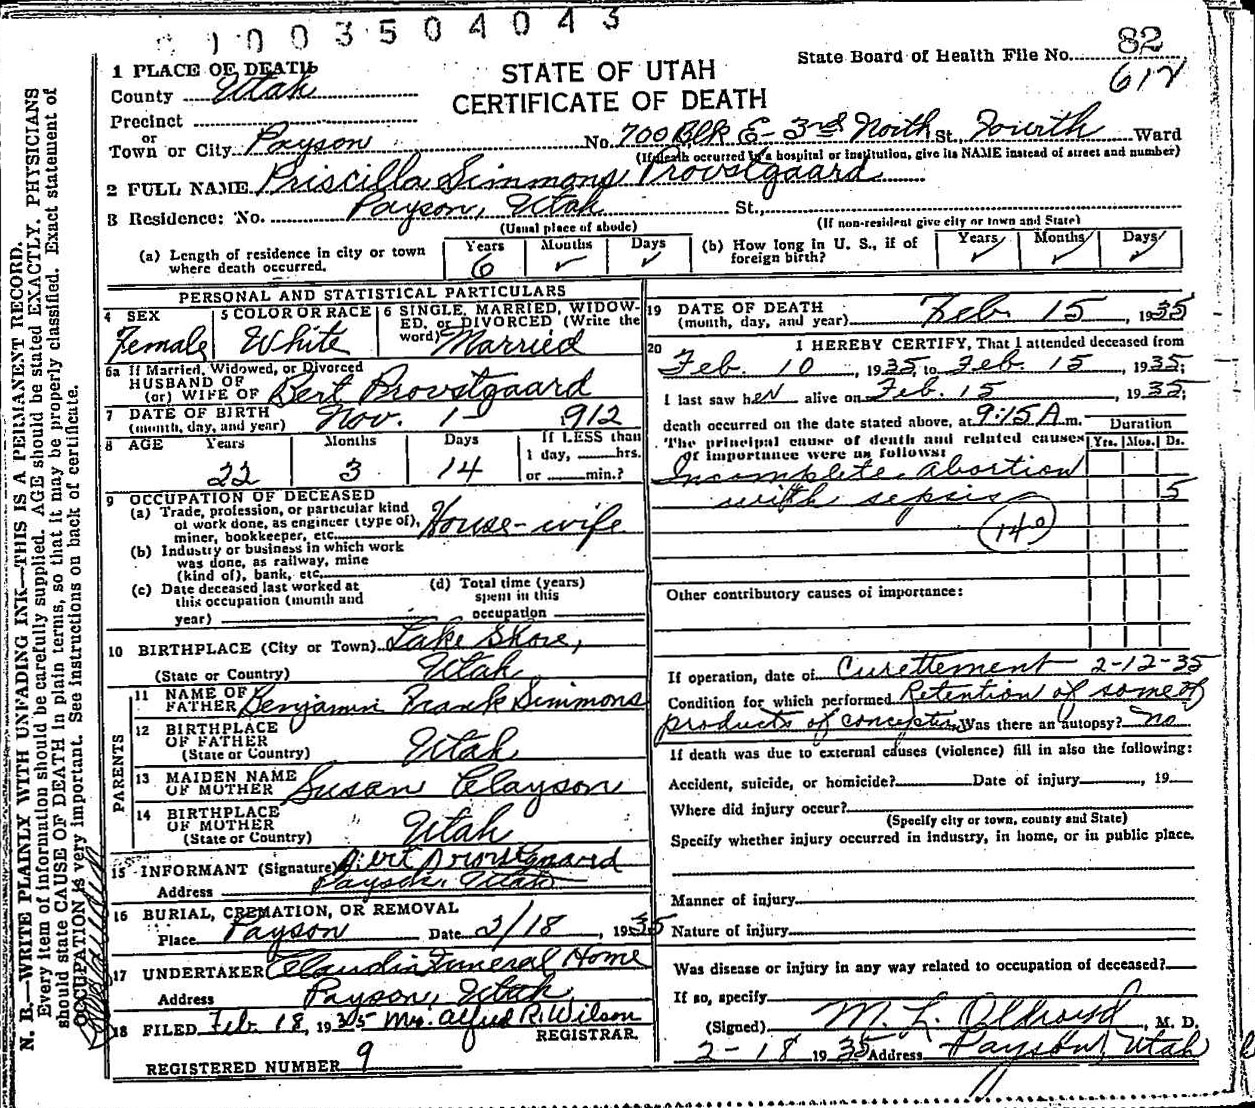 1003504043
STATE OF UTAH
CERTIFICATE OF DEATH
State Board of Health File No. 82
612
1 PLACE OF DEATH
County Utah
Precinct
or
Town or City Payson No. 700 Blk E - 3rd North St., Fourth Ward
(If death occurred in a hospital or institution, give its NAME instead of street and number)
2 FULL NAME Priscilla Simmons Provstgaard
3 Residence: No. Payson, Utah St.,
(Usual place of abode) (If non-resident give city or town and State)
(a) Length of residence in city or town where death occurred. Years 6 Months ✓ Days ✓
(b) How long in U. S., if of foreign birth? Years ✓ Months ✓ Days ✓
PERSONAL AND STATISTICAL PARTICULARS
4 SEX Female
5 COLOR OR RACE White
6 SINGLE, MARRIED, WIDOWED, or DIVORCED (Write the word) Married
6a If Married, Widowed, or Divorced
HUSBAND OF
(or) WIFE OF Bert Provstgaard
7 DATE OF BIRTH
(month, day, and year) Nov. 1 - 1912
8 AGE Years 22 Months 3 Days 14 If LESS than 1 day, hrs. or min.?
9 OCCUPATION OF DECEASED
(a) Trade, profession, or particular kind
of work done, as engineer (type of),
miner, bookkeeper, etc. House-wife
(b) Industry or business in which work
was done, as railway, mine
(kind of), bank, etc.
(c) Date deceased last worked at
this occupation (month and
year)
(d) Total time (years)
spent in this
occupation
10 BIRTHPLACE (City or Town) Lake Shore,
(State or Country) Utah
PARENTS
11 NAME OF FATHER Benjamin Frank Simmons
12 BIRTHPLACE OF FATHER
(State or Country) Utah
13 MAIDEN NAME OF MOTHER Susan Clayson
14 BIRTHPLACE OF MOTHER
(State or Country) Utah
15 INFORMANT (Signature) Bert Provstgaard
Address Payson, Utah
16 BURIAL, CREMATION, OR REMOVAL
Place Payson Date 2/18, 1935
17 UNDERTAKER Claudin Funeral Home
Address Payson, Utah
18 FILED Feb 18, 1935 Mrs. Alfred R. Wilson
REGISTRAR.
REGISTERED NUMBER 9
19 DATE OF DEATH
(month, day, and year) Feb. 15, 1935
20 I HEREBY CERTIFY, That I attended deceased from
Feb. 10, 1935, to Feb. 15, 1935;
I last saw her alive on Feb. 15, 1935;
death occurred on the date stated above, at 9:15 A.m.
The principal cause of death and related causes
Of importance were as follows:
Duration
Yrs. Mos. Ds.
Incomplete abortion
with sepsis 5
140
Other contributory causes of importance:
If operation, date of Curettement 2-12-35
Condition for which performed Retention of some of
products of conception Was there an autopsy? no
If death was due to external causes (violence) fill in also the following:
Accident, suicide, or homicide? Date of injury, 19
Where did injury occur?
(Specify city or town, county and State)
Specify whether injury occurred in industry, in home, or in public place.
Manner of injury
Nature of injury
Was disease or injury in any way related to occupation of deceased?
If so, specify
(Signed) M. L. Oldroyd, M. D.
2-18 1935 Address Payson, Utah
N. B.—WRITE PLAINLY WITH UNFADING INK—THIS IS A PERMANENT RECORD.
Every item of information should be carefully supplied. AGE should be stated EXACTLY. PHYSICIANS
should state CAUSE OF DEATH in plain terms, so that it may be properly classified. Exact statement of
OCCUPATION is very important. See instructions on back of certificate.